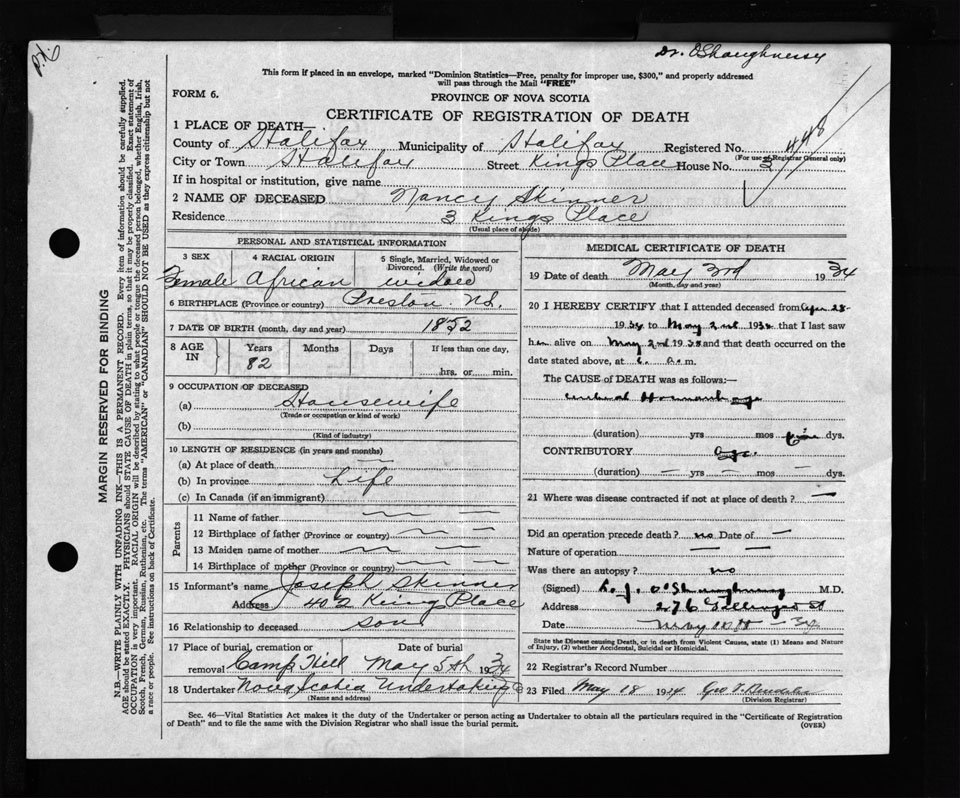 Dr. O'Shaughnessy
This form if placed in an envelope, marked "Dominion Statistics—Free, penalty for improper use, $300," and properly addressed
will pass through the Mail "FREE"
FORM 6.
PROVINCE OF NOVA SCOTIA
CERTIFICATE OF REGISTRATION OF DEATH
1 PLACE OF DEATH—
County of Halifax Municipality of Halifax Registered No. 448
(For use of Registrar General only)
City or Town Halifax Street Kings Place House No. 3
If in hospital or institution, give name
2 NAME OF DECEASED Nancy Skinner
Residence 3 Kings Place
(Usual place of abode)
PERSONAL AND STATISTICAL INFORMATION
3 SEX 4 RACIAL ORIGIN 5 Single, Married, Widowed or
Divorced. (Write the word)
Female African widow
6 BIRTHPLACE (Province or country) Preston N.S.
7 DATE OF BIRTH (month, day and year) 1852
8 AGE IN Years Months Days If less than one day,
82
hrs. or min.
9 OCCUPATION OF DECEASED
(a) Housewife
(Trade or occupation or kind of work)
(b)
(Kind of industry)
10 LENGTH OF RESIDENCE (in years and months)
(a) At place of death —
(b) In province Life
(c) In Canada (if an immigrant)
Parents
11 Name of father
12 Birthplace of father (Province or country)
13 Maiden name of mother
14 Birthplace of mother (Province or country)
15 Informant's name Joseph Skinner
Address 40 2 King Place
16 Relationship to deceased son
17 Place of burial, cremation or removal Date of burial
Camp Hill May 5th 1934
18 Undertaker Nova Scotia Undertaking Co
(Name and address)
MEDICAL CERTIFICATE OF DEATH
19 Date of death May 3rd 1934
(Month, day and year)
20 I HEREBY CERTIFY that I attended deceased from Apr 28
1934 to May 2nd 1934 that I last saw
her alive on May 2nd 19 and that death occurred on the
date stated above, at 6. a.m.
The CAUSE of DEATH was as follows:—
Cerebral Hemorrhage
(duration) yrs mos five dys.
CONTRIBUTORY Age.
(duration) — yrs — mos — dys.
21 Where was disease contracted if not at place of death? —
Did an operation precede death? no Date of —
Nature of operation — —
Was there an autopsy? no
(Signed) O'Shaughnessy M.D.
Address 276
Date May 34
State the Disease causing Death, or in death from Violent Causes, state (1) Means and Nature
of Injury, (2) whether Accidental, Suicidal or Homicidal.
22 Registrar's Record Number
23 Filed May 18 1934 Geo
(Division Registrar)
Sec. 46—Vital Statistics Act makes it the duty of the Undertaker or person acting as Undertaker to obtain all the particulars required in the "Certificate of Registration
of Death" and to file the same with the Division Registrar who shall issue the burial permit.
(OVER)
MARGIN RESERVED FOR BINDING
N.B.—WRITE PLAINLY WITH UNFADING INK—THIS IS A PERMANENT RECORD. Every item of information should be carefully supplied.
AGE should be stated EXACTLY. PHYSICIANS should STATE CAUSE OF DEATH in plain terms, so that it may be properly classified. Exact statement of
OCCUPATION is very important. RACIAL ORIGIN will be described by stating to what people or tongue the deceased person belonged, whether English, Irish,
Scotch, French, German, Russian, Ruthenian, etc. The terms "AMERICAN" or "CANADIAN" SHOULD NOT BE USED as they express citizenship but not
a race or people. See instructions on back of Certificate.